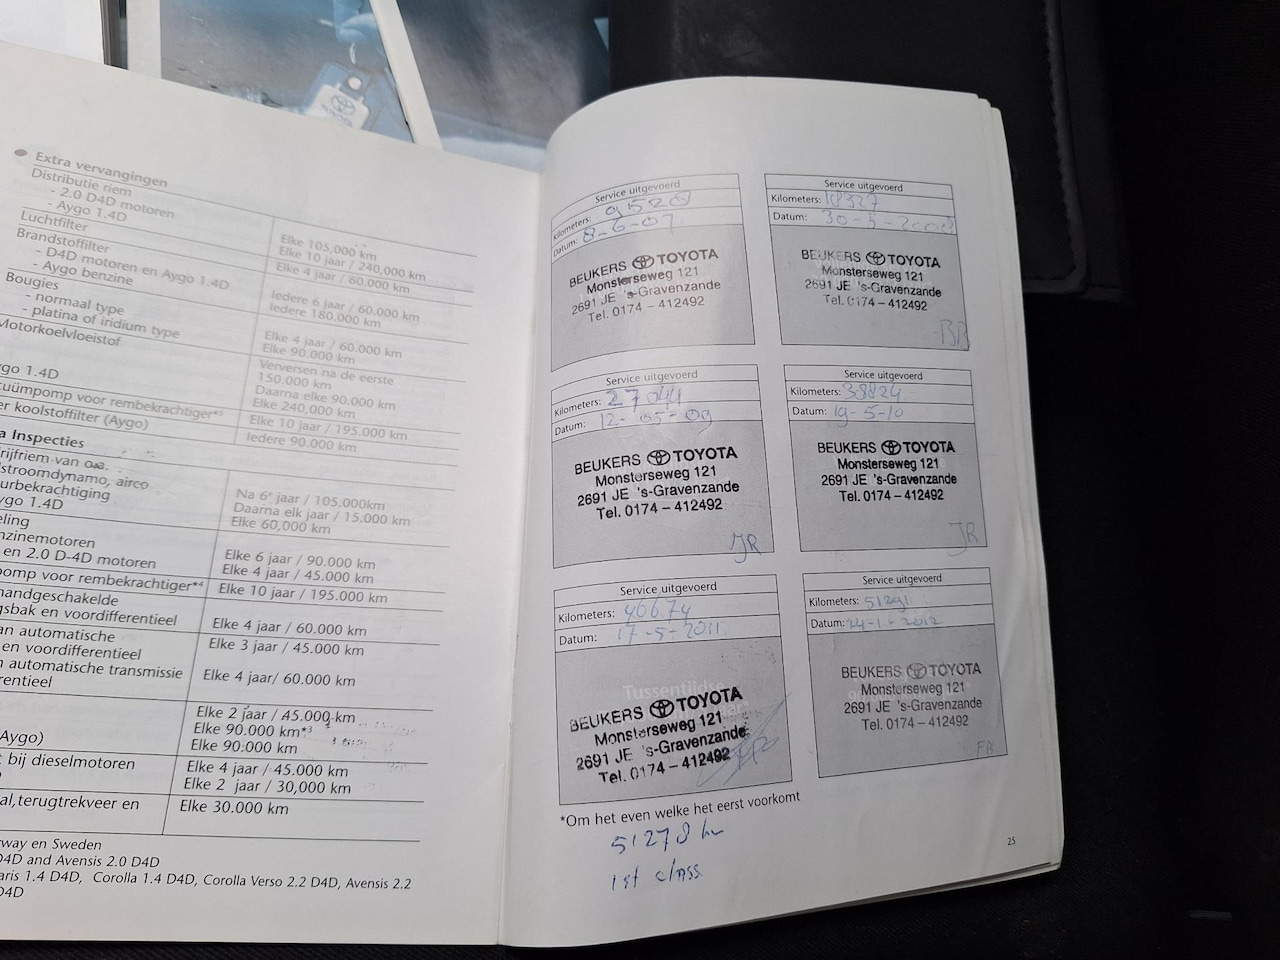 Extra vervangingen
Distributie riem
- 2.0 D4D motoren
- Aygo 1.4D
Elke 105,000 km
Elke 10 jaar / 240,000 km
Luchtfilter
Elke 4 jaar / 60.000 km
Brandstoffilter
- D4D motoren en Aygo 1.4D
- Aygo benzine
Iedere 6 jaar / 60.000 km
Iedere 180.000 km
Bougies
- normaal type
- platina of iridium type
Elke 4 jaar / 60.000 km
Elke 90.000 km
Motorkoelvloeistof
Verversen na de eerste
150.000 km
Daarna elke 90.000 km
Elke 240,000 km
ygo 1.4D
cuümpomp voor rembekrachtiger*5
Elke 10 jaar / 195.000 km
er koolstoffilter (Aygo)
Iedere 90.000 km
a Inspecties
rijfriem van o.a.
lstroomdynamo, airco
urbekrachtiging
ygo 1.4D
Na 6e jaar / 105.000km
Daarna elk jaar / 15.000 km
Elke 60,000 km
eling
nzinemotoren
en 2.0 D-4D motoren
Elke 6 jaar / 90.000 km
Elke 4 jaar / 45.000 km
pomp voor rembekrachtiger*4
Elke 10 jaar / 195.000 km
handgeschakelde
gsbak en voordifferentieel
Elke 4 jaar / 60.000 km
an automatische
en voordifferentieel
Elke 3 jaar / 45.000 km
n automatische transmissie
rentieel
Elke 4 jaar/ 60.000 km
Elke 2 jaar / 45.000 km
Elke 90.000 km*3
(Aygo)
Elke 90.000 km
t bij dieselmotoren
Elke 4 jaar / 45.000 km
Elke 2 jaar / 30,000 km
al,terugtrekveer en
Elke 30.000 km
rway en Sweden
D4D and Avensis 2.0 D4D
aris 1.4 D4D, Corolla 1.4 D4D, Corolla Verso 2.2 D4D, Avensis 2.2
D4D
Service uitgevoerd
Kilometers: 9520
Datum: 8-6-07
BEUKERS TOYOTA
Monsterseweg 121
2691 JE 's-Gravenzande
Tel. 0174 – 412492
Service uitgevoerd
Kilometers: 18327
Datum: 30-5-2008
BEUKERS TOYOTA
Monsterseweg 121
2691 JE 's-Gravenzande
Tel. 0174 – 412492
BB
Service uitgevoerd
Kilometers: 27044
Datum: 12-05-09
BEUKERS TOYOTA
Monsterseweg 121
2691 JE 's-Gravenzande
Tel. 0174 – 412492
JR
Service uitgevoerd
Kilometers: 38824
Datum: 19-5-10
BEUKERS TOYOTA
Monsterseweg 121
2691 JE 's-Gravenzande
Tel. 0174 – 412492
JR
Service uitgevoerd
Kilometers: 46674
Datum: 17-5-2011
Tussentijdse
BEUKERS TOYOTA
Monsterseweg 121
2691 JE 's-Gravenzande
Tel. 0174 – 412492
Service uitgevoerd
Kilometers: 51291
Datum: 24-1-2012
BEUKERS TOYOTA
Monsterseweg 121
2691 JE 's-Gravenzande
Tel. 0174 – 412492
FB
*Om het even welke het eerst voorkomt
51278 km
1st class
25